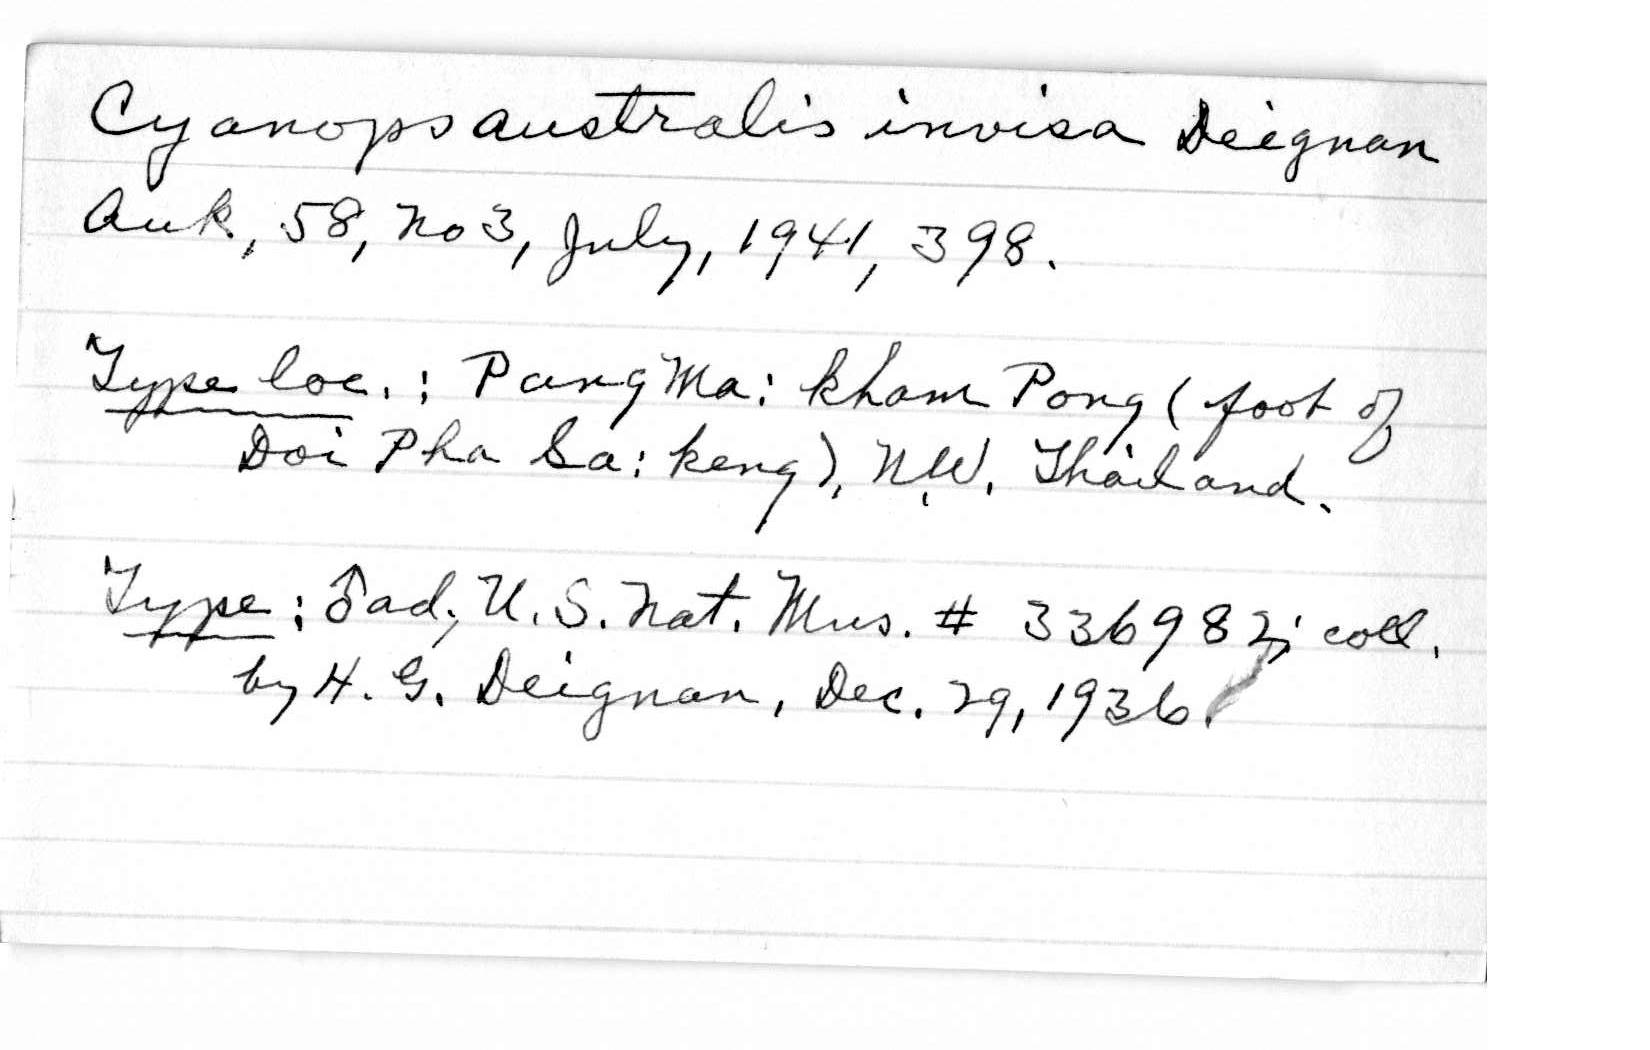 Cyanops australis invisa Deignan
Auk, 58, no 3, July, 1941, 398.
Type loc.: Pang Ma: kham Pong (foot of
Doi Pha Sa: keng), N.W. Thailand.
Type: ♂ ad; U.S. Nat. Mus. # 336982; coll.
by H. G. Deignan, Dec. 29, 1936.